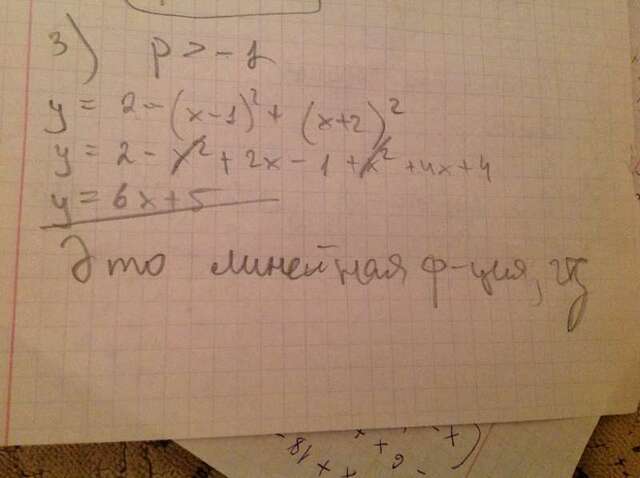 3) p > -1
y = 2 - (x-1)² + (x+2)²
y = 2 - x² + 2x - 1 + x² + 4x + 4
y = 6x + 5
Это линейная ф-ция,